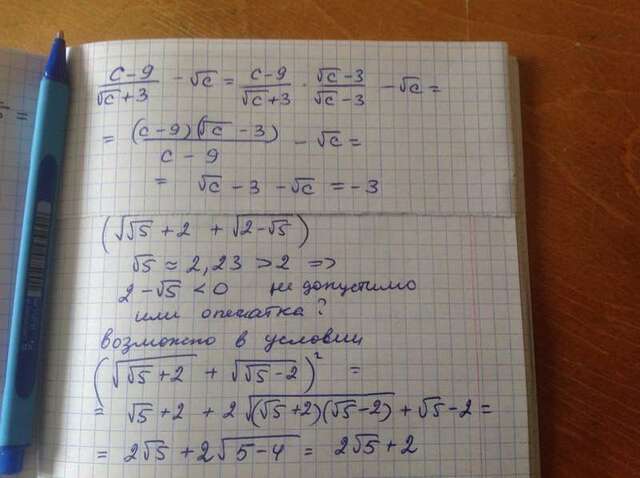 (c-9)/(√c+3) - √c = (c-9)/(√c+3) · (√c-3)/(√c-3) - √c =
= (c-9)(√c-3)/(c-9) - √c =
= √c - 3 - √c = -3
(√(√5+2) + √(2-√5))
√5 ≈ 2,23 > 2 =>
2-√5 < 0 не допустимо
или опечатка?
возможно в условии
(√(√5+2) + √(√5-2))² =
= √5+2 + 2√((√5+2)(√5-2)) + √5-2 =
= 2√5 + 2√(5-4) = 2√5+2